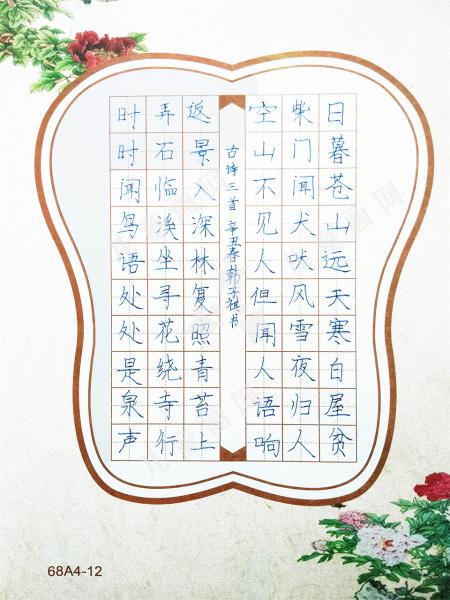 日暮苍山远天寒白屋贫
柴门闻犬吠风雪夜归人
空山不见人但闻人语响
古诗三首 辛丑春韩子棋书
返景入深林复照青苔上
弄石临溪坐寻花绕寺行
时时闻鸟语处处是泉声
68A4-12